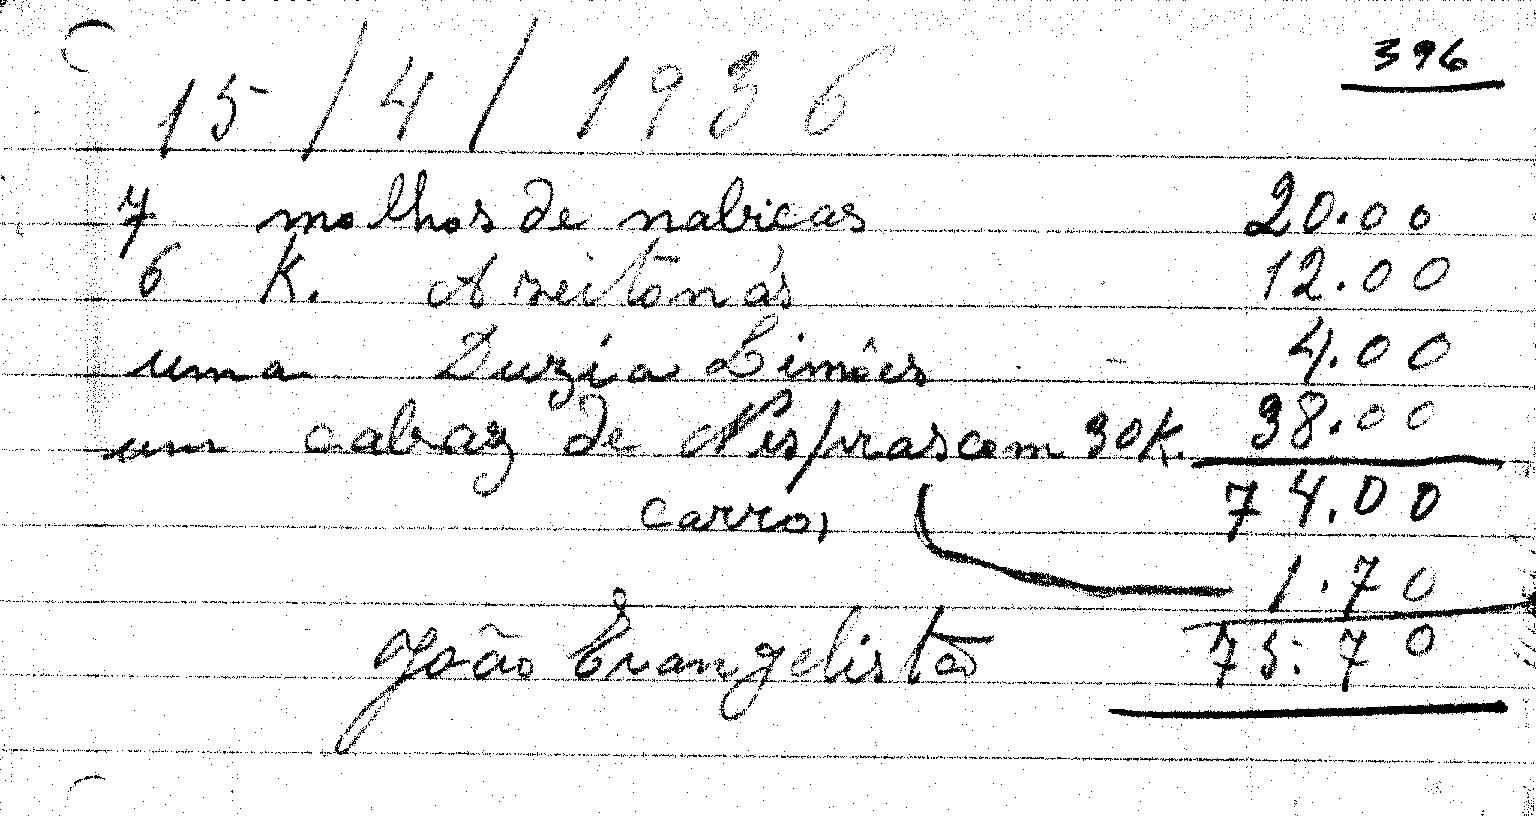 396
15/4/1936
7 molhos de nabicas 20.00
6 K. Azeitonas 12.00
uma Duzia Limões 4.00
um cabaz de Nespras com 30K. 38.00
74.00
carro, 1.70
75.70
João Evangelista